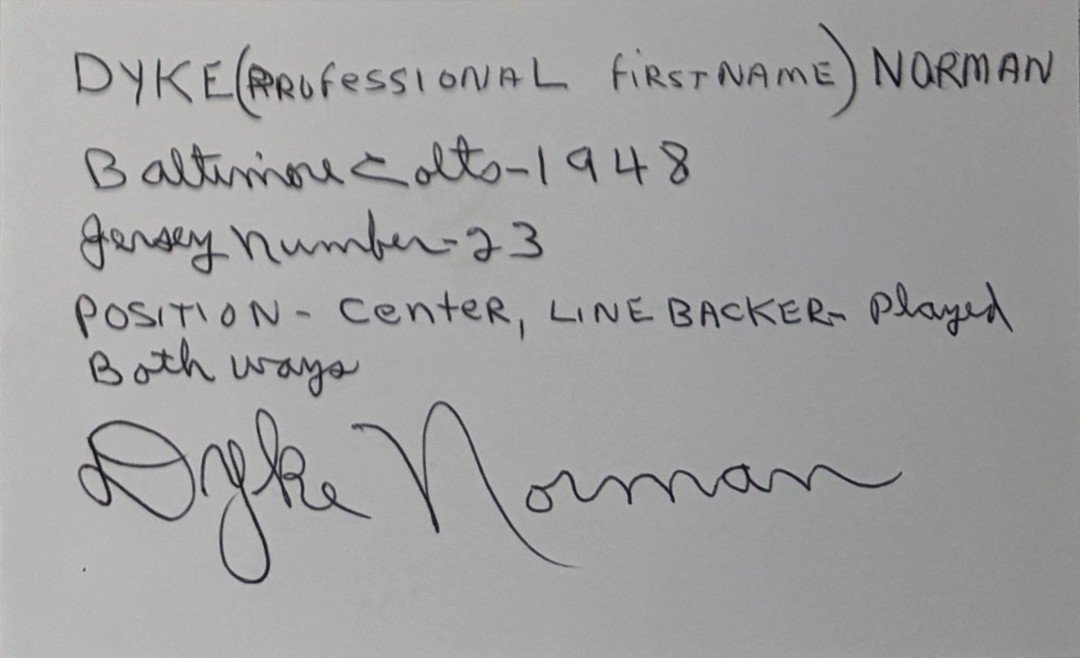 DYKE (PROFESSIONAL FIRST NAME) NORMAN
Baltimore Colts-1948
Jersey Number-23
POSITION - Center, LINE BACKER- Played
Both ways
Dyke Norman